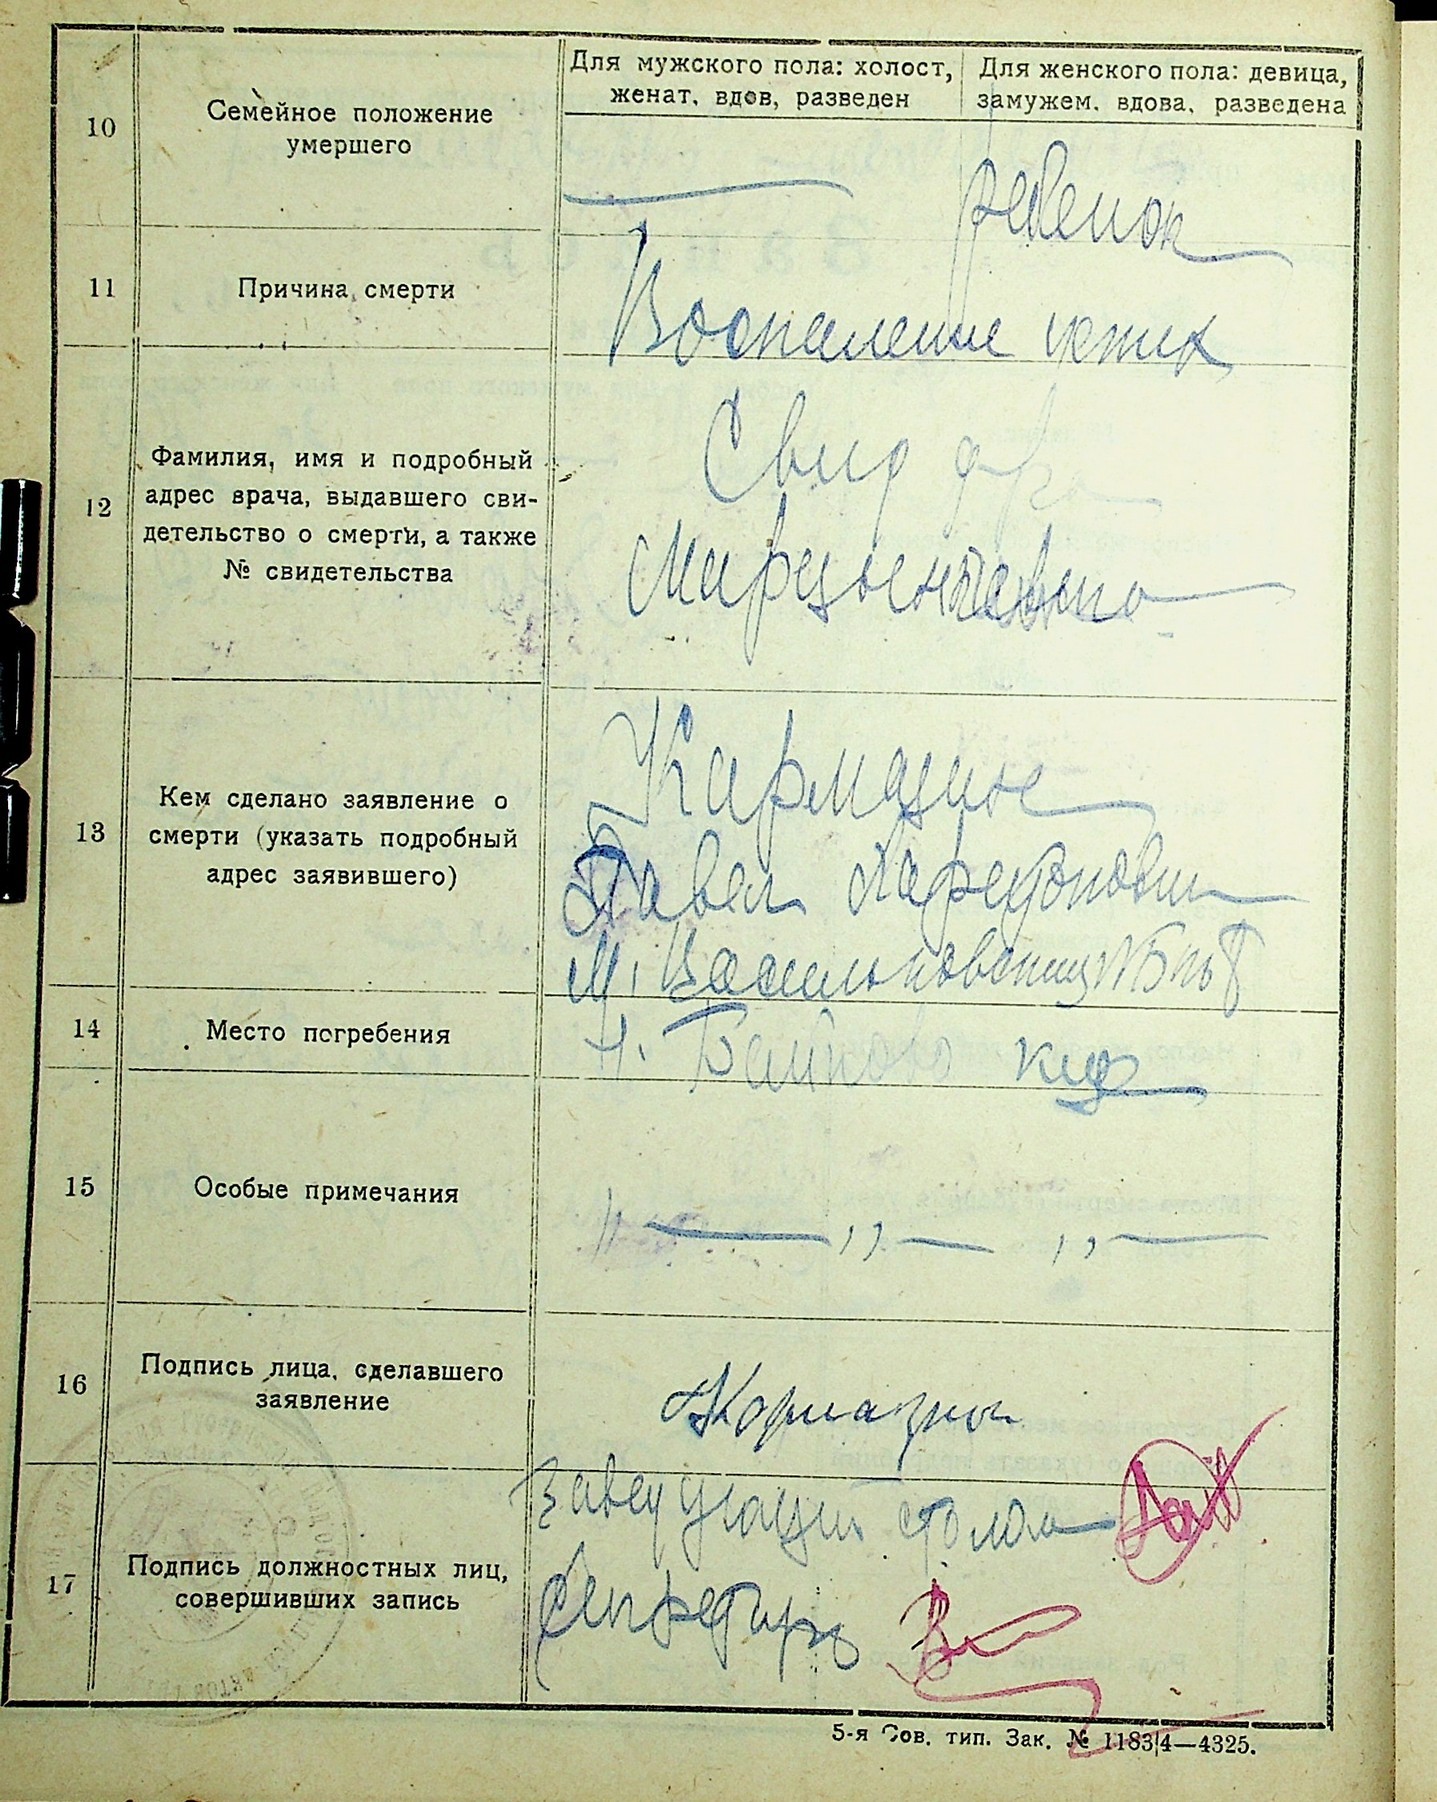 Для мужского пола: холост,
женат, вдов, разведен
Для женского пола: девица,
замужем. вдова, разведена
10
Семейное положение
умершего
ребенок
11
Причина смерти
Воспаление
12
Фамилия, имя и подробный
адрес врача, выдавшего сви-
детельство о смерти, а также
№ свидетельства
Свид
13
Кем сделано заявление о
смерти (указать подробный
адрес заявившего)
Кармазин
Павел
М. Васильковская
14
Место погребения
Байково кл
15
Особые примечания
" — ,, — ,, —
16
Подпись лица, сделавшего
заявление
Кармазин
17
Подпись должностных лиц,
совершивших запись
Заведующий стола
Секретарь
5-я Сов. тип. Зак. № 1183|4—4325.